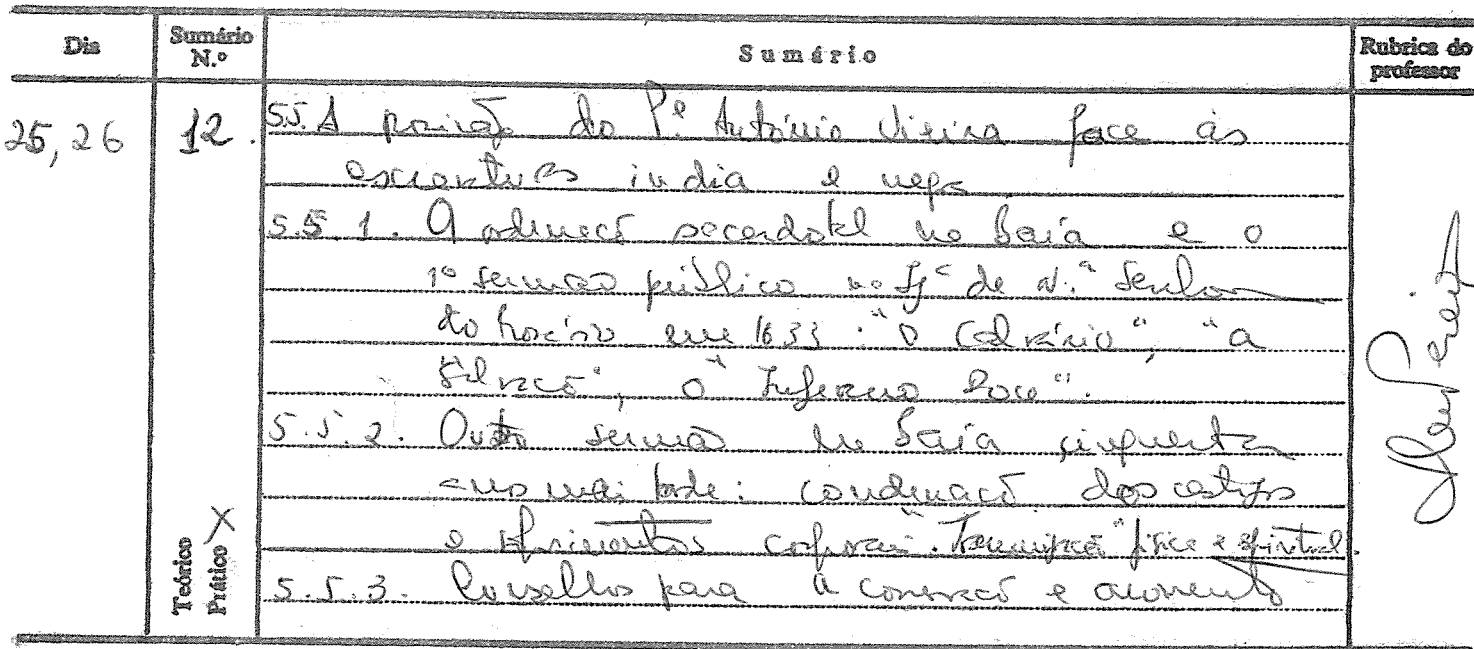 Dia
Sumário N.º
Sumário
Rubrica do professor
25, 26
12.
5.5. A posição do P.e António Vieira face às
escravaturas índia e negra
5.5.1. A ordenação sacerdotal na Baía e o
1º sermão público na Igª de N.ª Senhora
do Rosário em 1633: "O Calvário", "a
Salvação", o "Inferno Doce".
5.5.2. Outro sermão na Baía cinquenta
anos mais tarde: condenação dos castigos
e sofrimentos corporais. física e espiritual.
5.5.3. Conselhos para a conservação e aumento
Teórico
Prático X